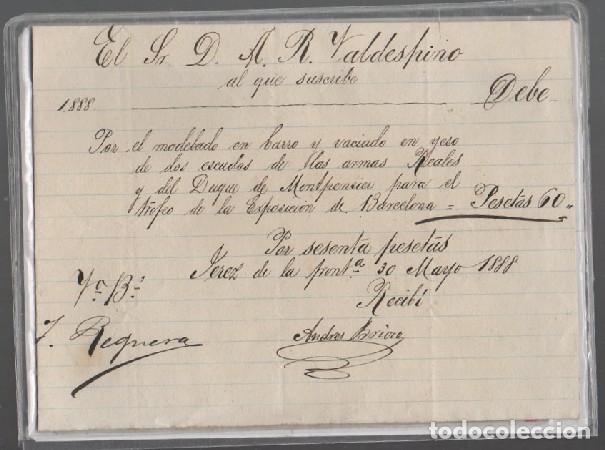 El Sr. D. A. R. Valdespino
al que suscribe
1888 Debe
Por el modelado en barro y vaciado en yeso
de dos escudos de las armas Reales
y del Duque de Montpensier para el
trofeo de la Esposicion de Barcelona = Pesetas 60 "
Son sesenta pesetas
Jerez de la front.ª 30 Mayo 1888
Vº Bº
Recibí
J. Requera
Andres
todocoleccion.net